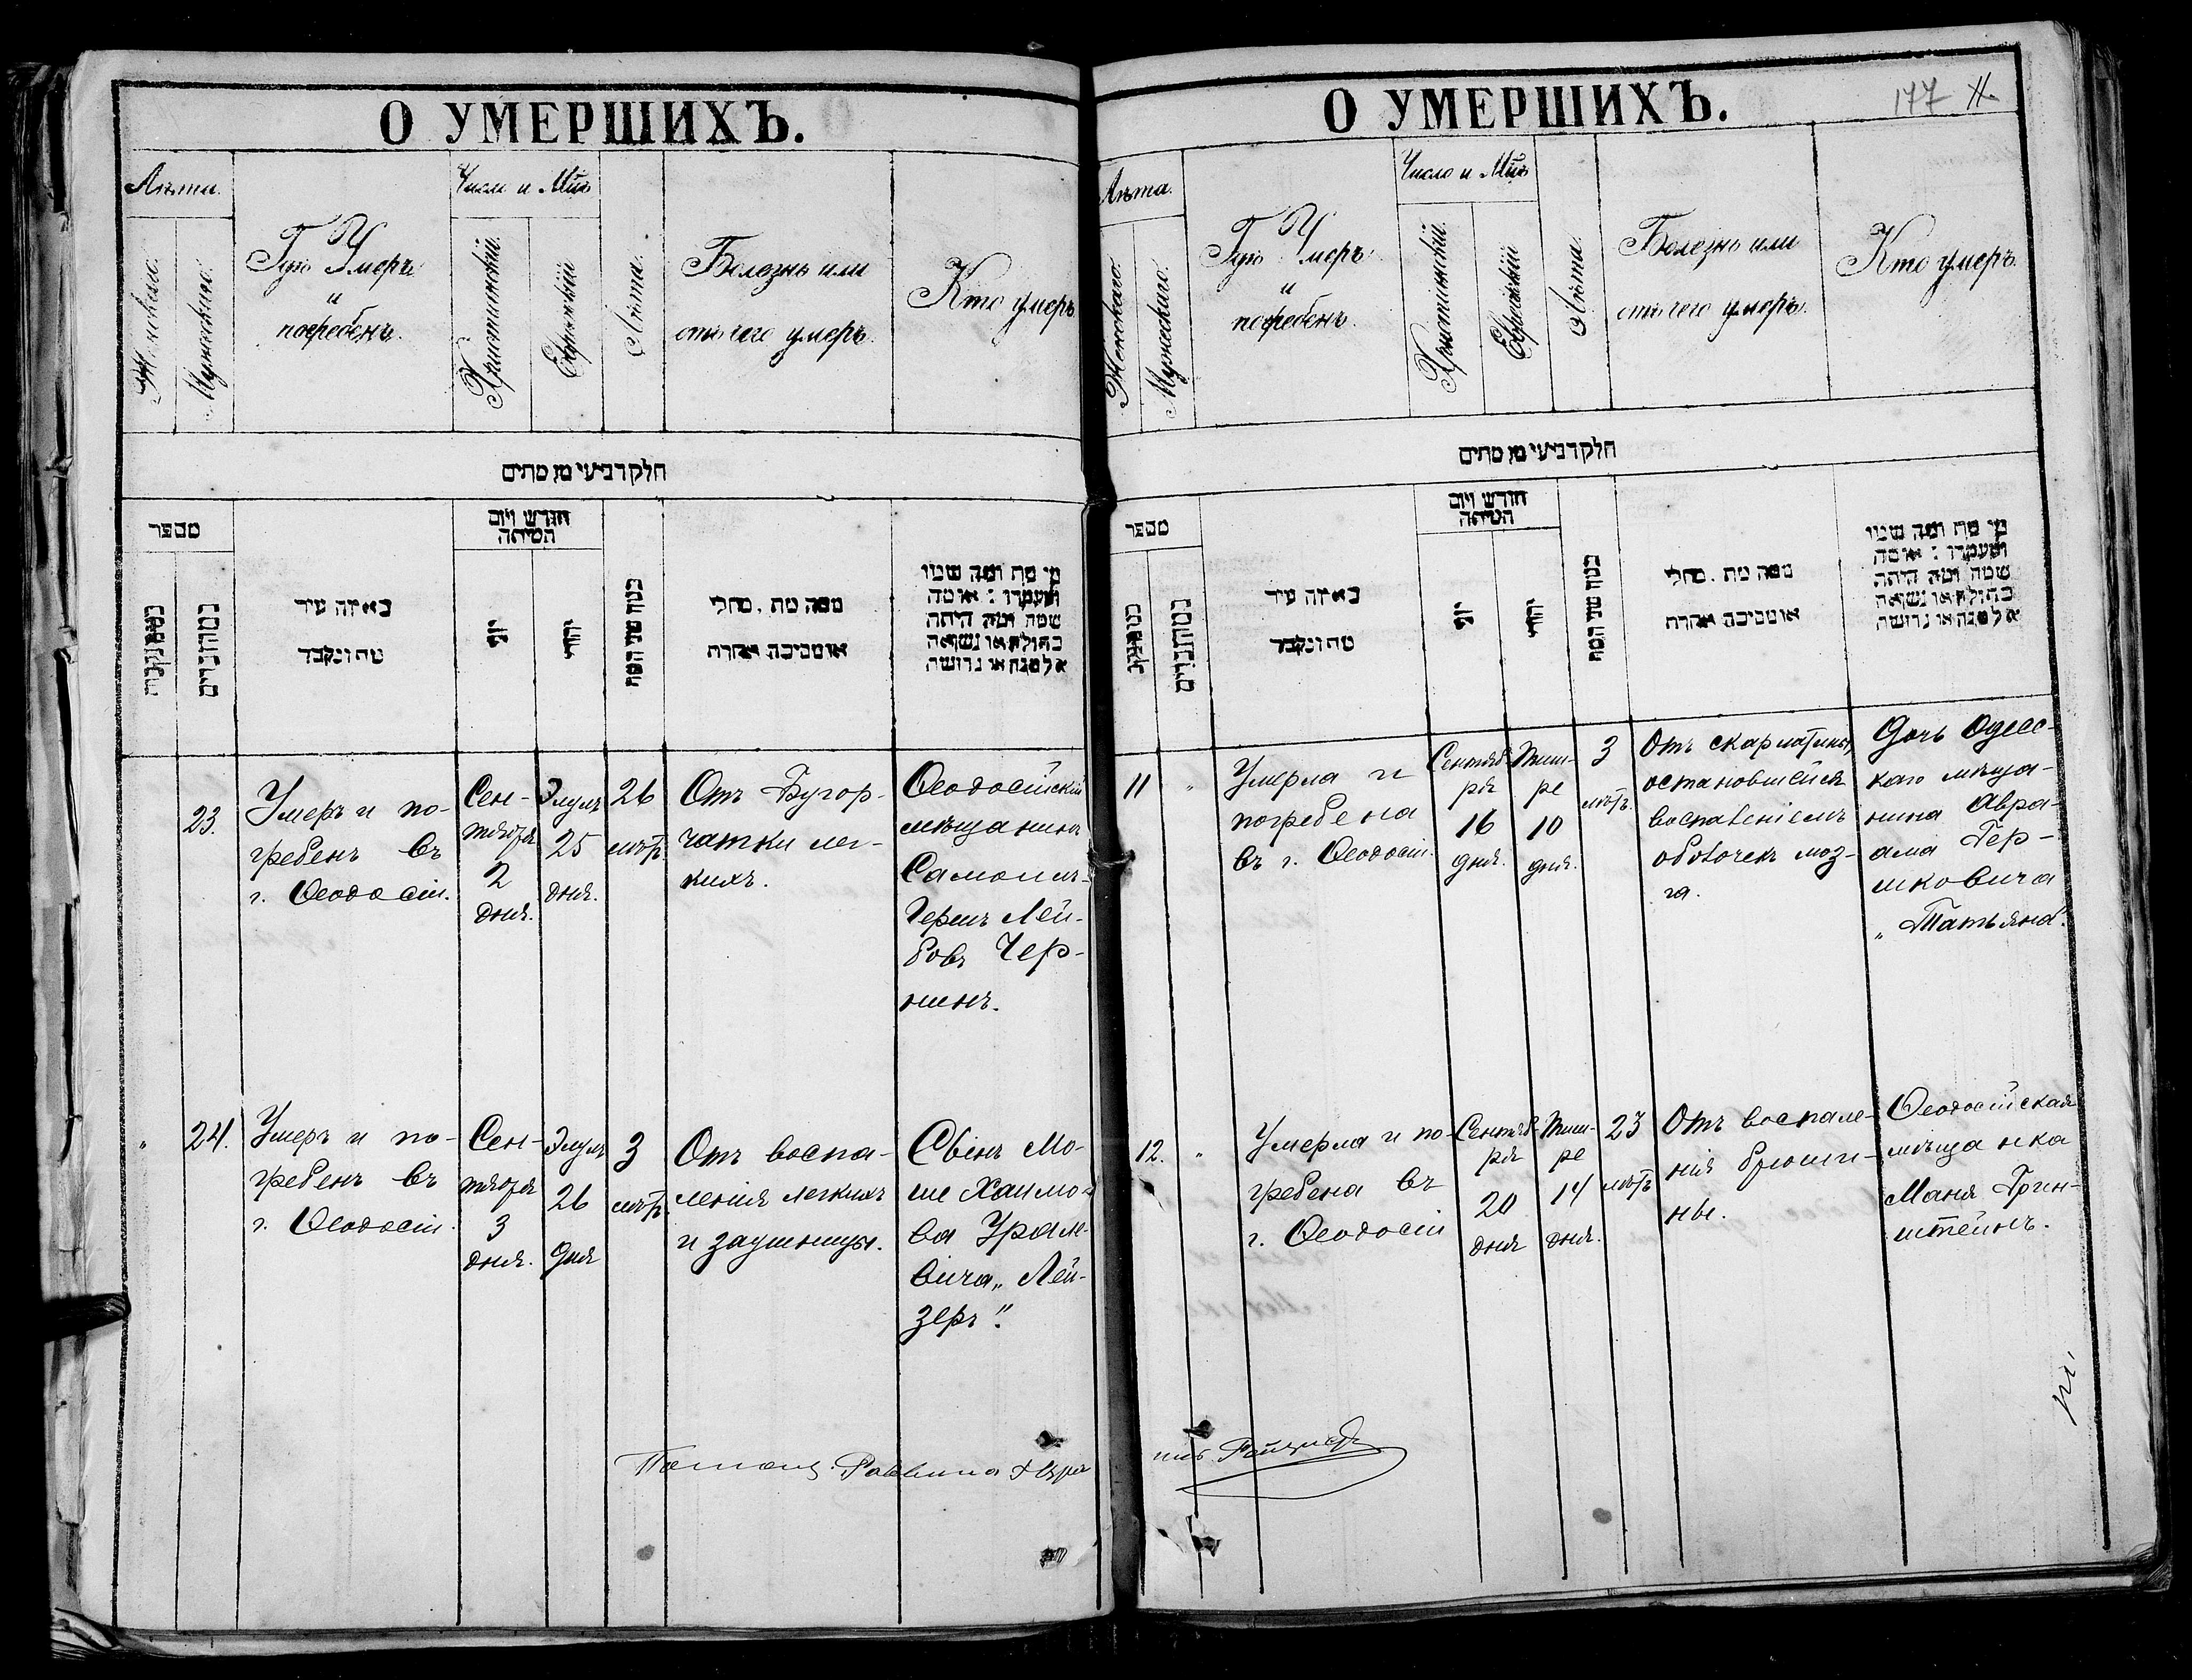 О УМЕРШИХЪ.
Лѣта.
Женского.
Мужескаго.
Гдѣ Умеръ
и
погребенъ.
Число и Мѣс.
Христіанскій.
Еврейскій
Лѣта.
Болезнь или
отъ чего умеръ.
Кто умеръ
חלק רביעי מן מתים
מספר
הנקבות
הזכרים
באיזה עיר
מת ונקבר
חודש ויום
המיתה
יוני
יהודי
כמה שני המת
ממה מת . מחלי
או מסיבה אחרת
מי מת ומה שמו
ומעמדו : או מה
שמה ומה היתה
בתולה או נשואה
אלמנה או גרושה
23.
Умеръ и по-
гребенъ въ
г. Ѳеодосіи.
Сен-
тября
2
дня.
Элулъ
25
дня.
26
лѣтъ.
Отъ Бугор-
чатки лег-
кихъ.
Ѳеодосійскій
мѣщанинъ
Самоилъ-
Гершъ Лей-
бовъ Чер-
нинъ.
" 24.
Умеръ и по-
гребенъ въ
г. Ѳеодосіи.
Сен-
тября
3
дня.
Элулъ
26
дня
3
лѣтъ.
Отъ воспа-
ленія легкихъ
и заушницы.
Сынъ Мо-
ше Хаимо-
ва Урам-
вича „Лей-
зеръ".
Помощ. Раввина
О УМЕРШИХЪ.
177
11.
Лѣта.
Женскаго
Мужескаго.
Гдѣ Умеръ
и
погребенъ.
Число и Мѣс.
Христіанскій.
Еврейскій
Лѣта.
Болезнь или
отъ чего умеръ.
Кто умеръ.
חלק רביעי מן מתים
מספר
הנקבות
הזכרים
באיזה עיר
מת ונקבר
חודש ויום
המיתה
יוני
יהודי
כמה שני המת
ממה מת . מחלי
או מסיבה אחרת
מי מת ומה שמו
ומעמדו : או מה
שמה ומה היתה
בתולה או נשואה
אלמנה או גרושה
11 "
Умерла и
погребена
въ г. Ѳеодосіи.
Сентяб-
ря
16
дня.
Тиш-
ре
10
дня.
3
лѣтъ.
Отъ скарлатины,
остановшейся
воспаленіемъ
оболочекъ моз-
га.
Дочь Одесс-
каго мѣща-
нина Авра-
ама Гер-
шковича
„Татьяна".
12. "
Умерла и по-
гребена въ
г. Ѳеодосіи
Сентяб-
ря
20
дня
Тиш-
ре
14
дня.
23
лѣтъ
Отъ воспале-
нія брюши-
ны.
Ѳеодосійская
мѣщанка
Маня Грин-
штейнъ.